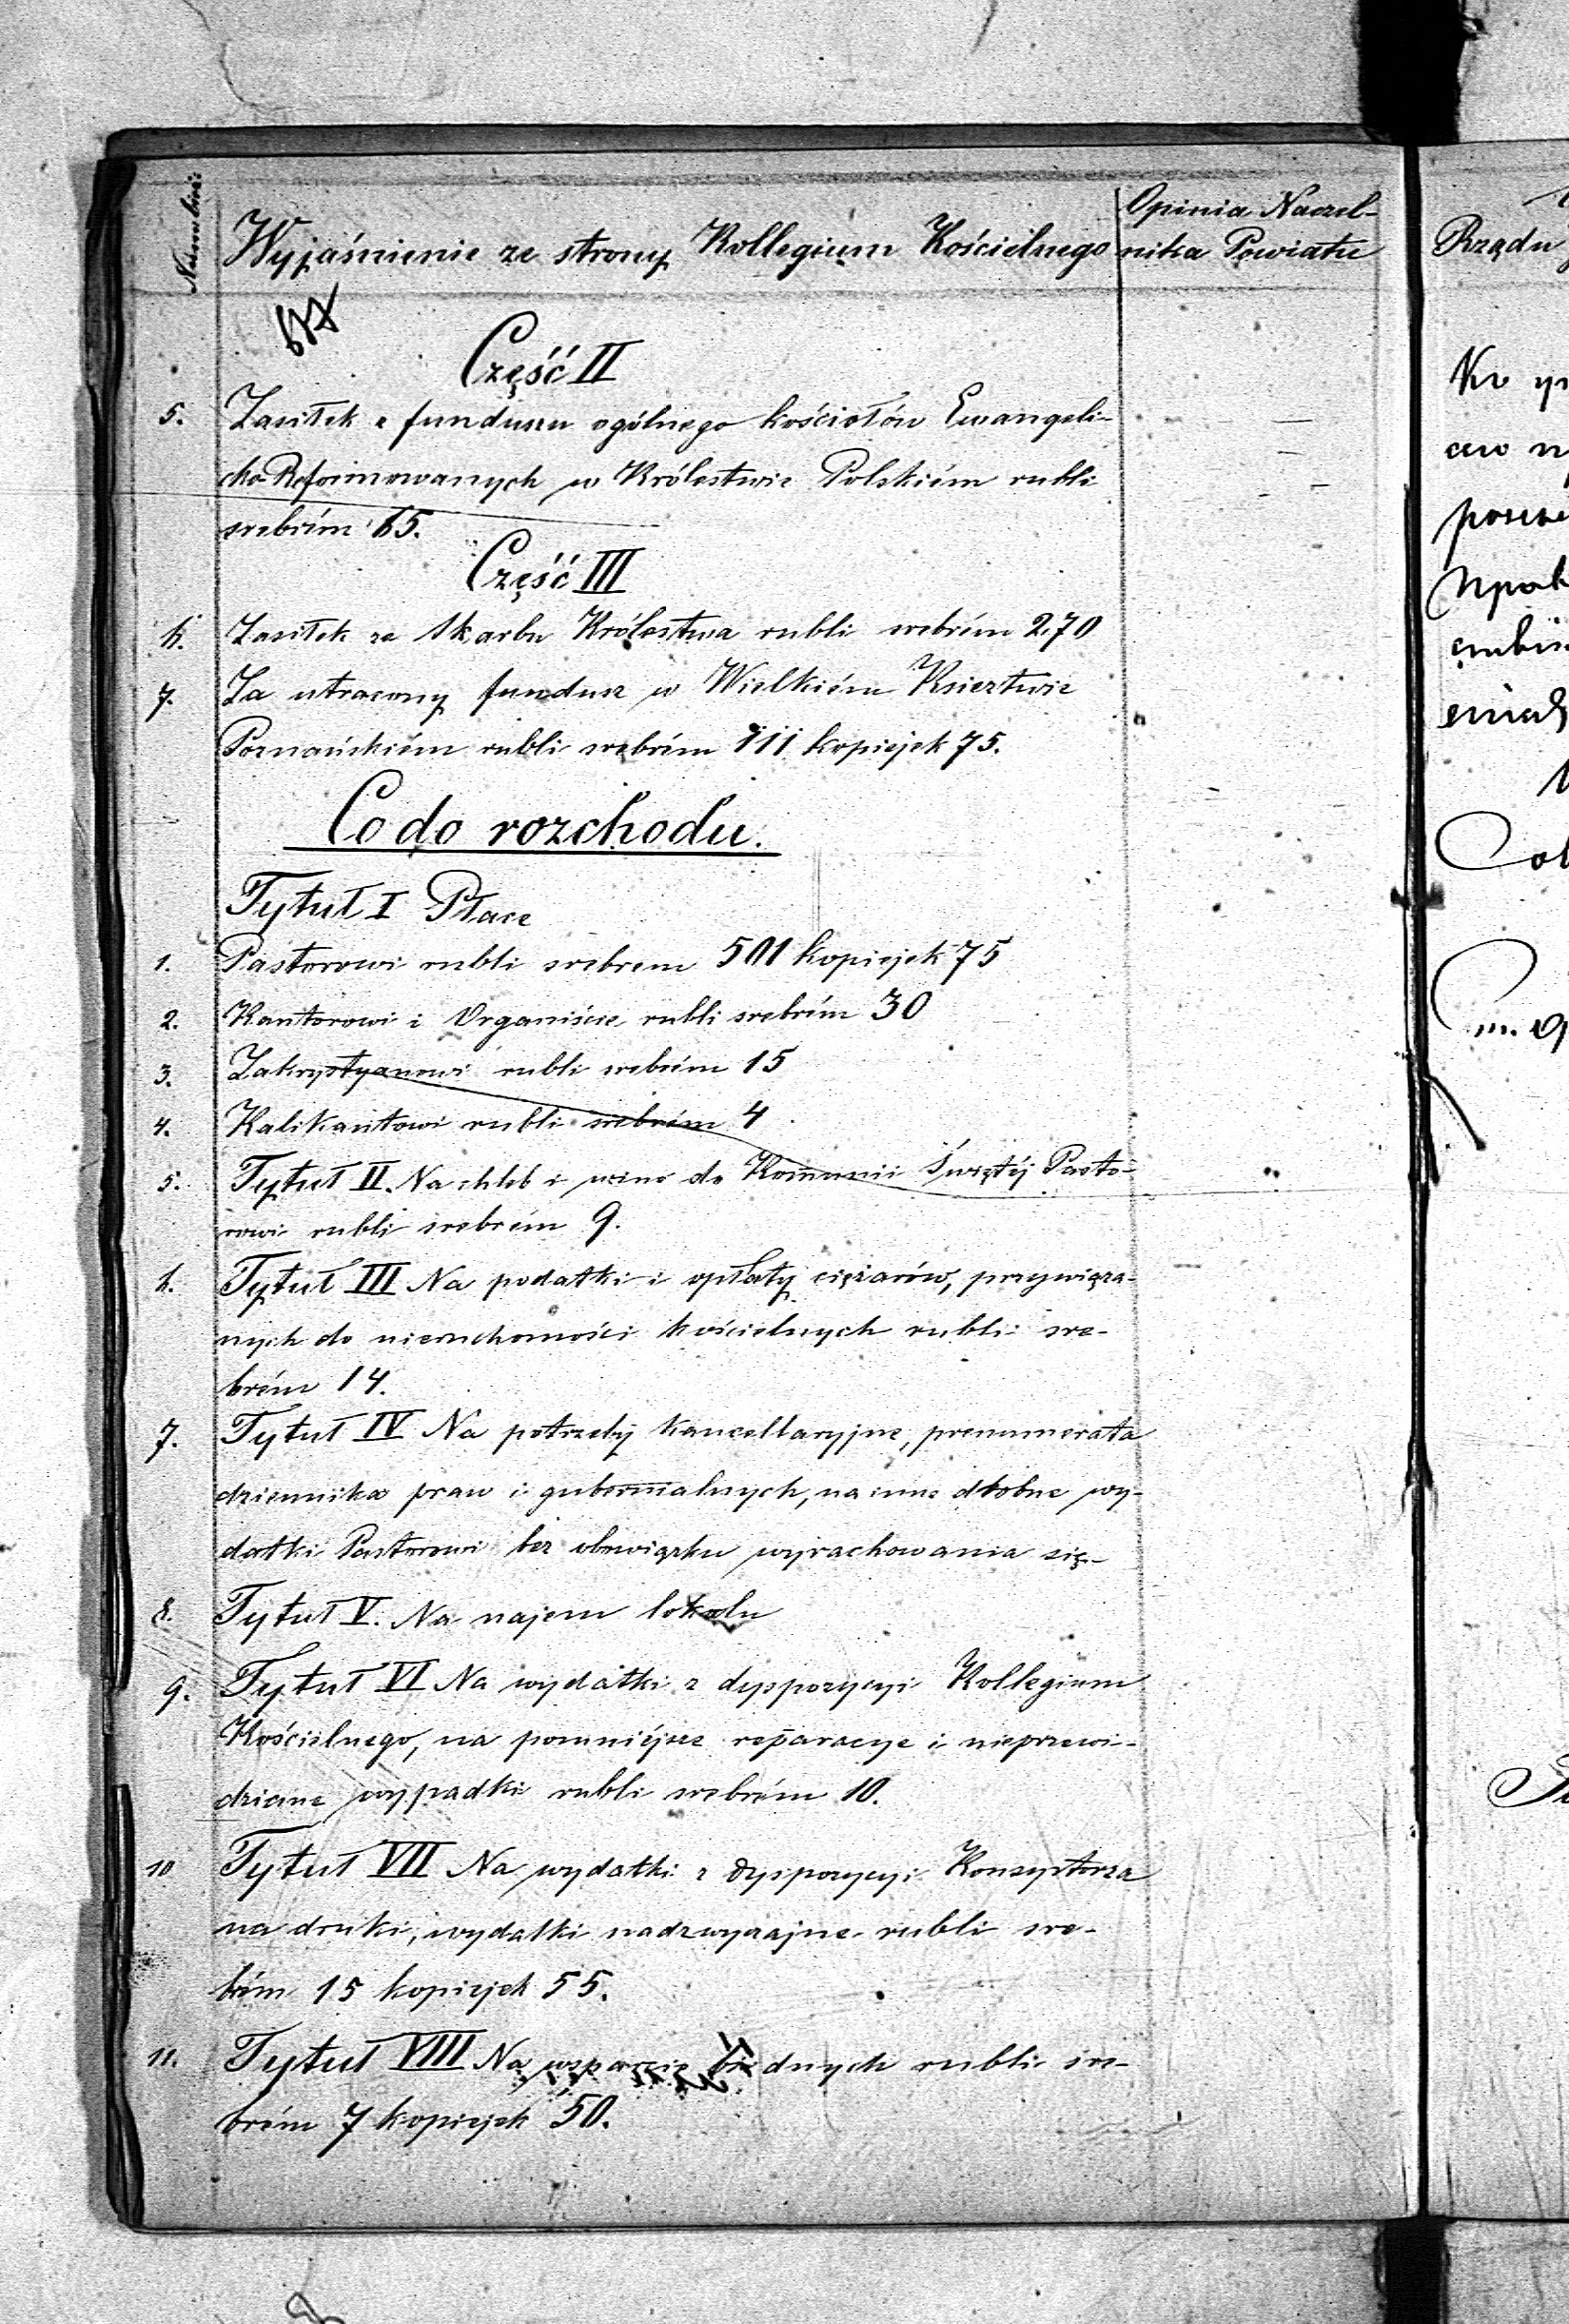 Opinia Naczel-
Wyjaśnienie ze strony Kollegium Kościelnego nika Powiatu
Rządu
Część II
5. Zasiłek z funduszu ogólnego kościołów Ewangeli-
cko Reformowanych w Królestwie Polskiém rubli
srebrém 65.
Część III
6. Zasiłek ze Skarbu Królestwa rubli srebrém 270
7. Za utracony fundusz w Wielkiém Księztwie
Poznańskiém rubli srebrém 111 kopiejek 75.
Co do rozchodu.
Tytuł I Płace
1. Pastorowi rubli srebrem 501 kopiejek 75
2. Kantorowi i Organiście rubli srebrém 30
3. Zakrystyanowi rubli srebrém 15
4. Kalikantowi rubli srebrém 4
5. Tytuł II. Na chleb i wino do Kom̄unii Świętéj Pasto-
rowi rubli srebrém 9.
6. Tytuł III Na podatki i opłaty ciężarów, przywiąza-
nych do nieruchomości kościelnych rubli sre-
brém 14.
7. Tytuł IV Na potrzeby kancellaryjne, prenumerata
dziennika praw i gubernialnych, na inne drobne wy-
datki Pastorowi bez obowiązku wyrachowania się
8. Tytuł V. Na najem lokalu
9. Tytuł VI Na wydatki z dyspozycyi Kollegium
Kościelnego, na pomniéjsze reparacye i nieprzewi-
dziane wypadki rubli srebrém 10.
10 Tytuł VII Na wydatki z dyspozycyi Konsystorza
na druki, wydatki nadzwyczajne rubli sre-
brém 15 kopiejek 55.
11. Tytuł VIII Na wsparcie biednych rubli sre-
brém 7 kopiejek 50.